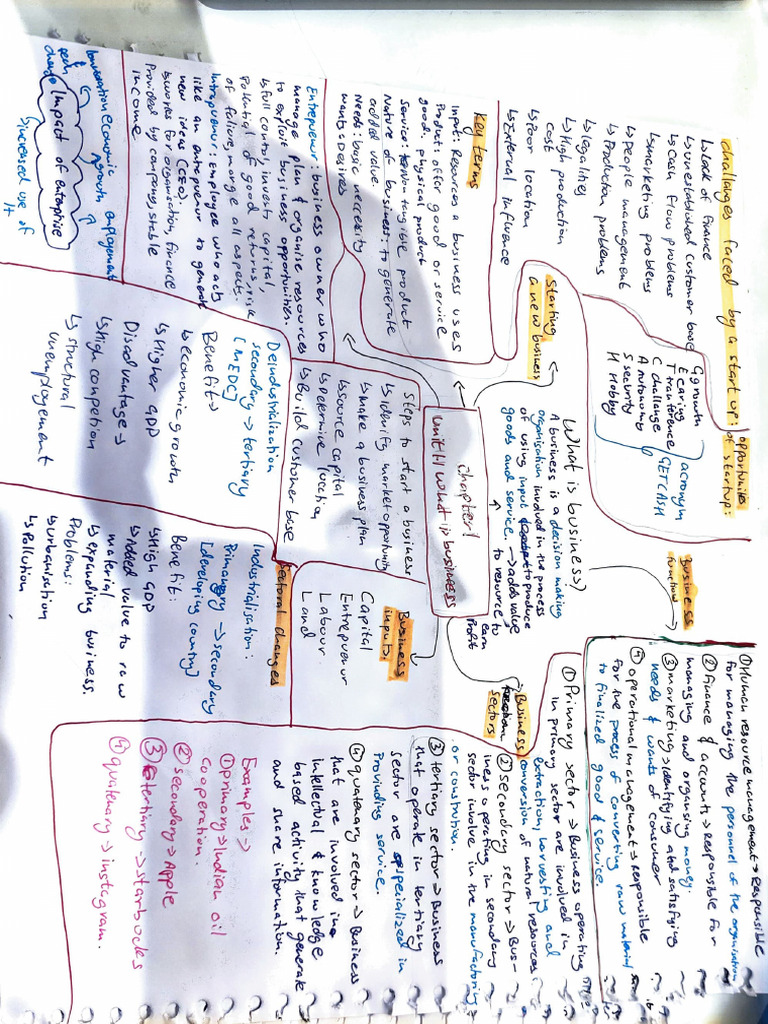 Chapter 1
Unit 1.1 What is business
What is business?
A business is a decision making
organisation involved in the process
of using input to produce
goods and service. → adds value
to resource to
earn
profit
Starting
a new business
challanges faced by a start up:
↳ Lack of finance
↳ unestablished customer base
↳ Cash flow problems
↳ marketing problems
↳ people management
↳ Production problems
↳ legalities
↳ High production
cost
↳ Poor location
↳ External influence
opportunities
of startup:
G growth
E earing
T transference
C challenge
A Autonomy
S security
H Hobby
acronym
GETCASH
Business
functions
① Human resource management → Responsible
for managing the personnel of the organisation
② finance & accounts → responsible for
managing and organising money.
③ marketing → identifying and satisfying
needs & wants of consumer
④ operational management → responsible
for the process of converting raw material
to finalized good & service.
Business
sectors
① Primary sector → Business operating
in primary sector are involved in
extraction, harvesting and
conversion of natural resources.
② secondary sector → Bus-
iness operating in secondary
sector involve in the manufacturing
or constrution.
③ tertiary sector → Business
that operate in tertiary
sector are specialized in
Provinding service.
④ quatenary sector → Business
that are involved in
intellectual & knowledge
based activity that generate
and share information.
Examples →
① primary → Indian oil
cooperation.
② secondary → Apple
③ tertiary → starbucks
④ quatenary → instagram.
Business
inputs:
Capital
Entrepenur
Labour
Land
Sectoral changes
Industrialisation:
Primary → secondary
[developing country]
Benefit:
↳ High GDP
↳ Added value to raw
material
↳ expanding business.
Problems:
↳ urbanisation
↳ Pollution
Deindustrialization
secondary → tertiary
[MEDC]
Benefit →
↳ economic growth
↳ Higher GDP
Disadvantage →
↳ High competion
↳ structural
unemployement
Steps to start a business
↳ identify market opportunity
↳ make a business plan
↳ source capital
↳ Determine location
↳ Build customer base
Key terms
Input: Resources a business uses
Product: offer good or service
good: physical product
Service: Non tangible product
Nature of business: to generate
added value.
Need: basic necessity
wants: Desires
Entrepenur: business owner who
manage plan & organise resources
to exploit business opportunities.
↳ full control, invest capital,
potential of good returns, risk
of failure, manage all aspects.
Intrapenur: employee who acts
like an entrepenur to generate
new ideas (CEO)
↳ works for organisation, finance
Provided by company, stable
income
Impact of enterprise
economic
growth
employement
increased use of
it